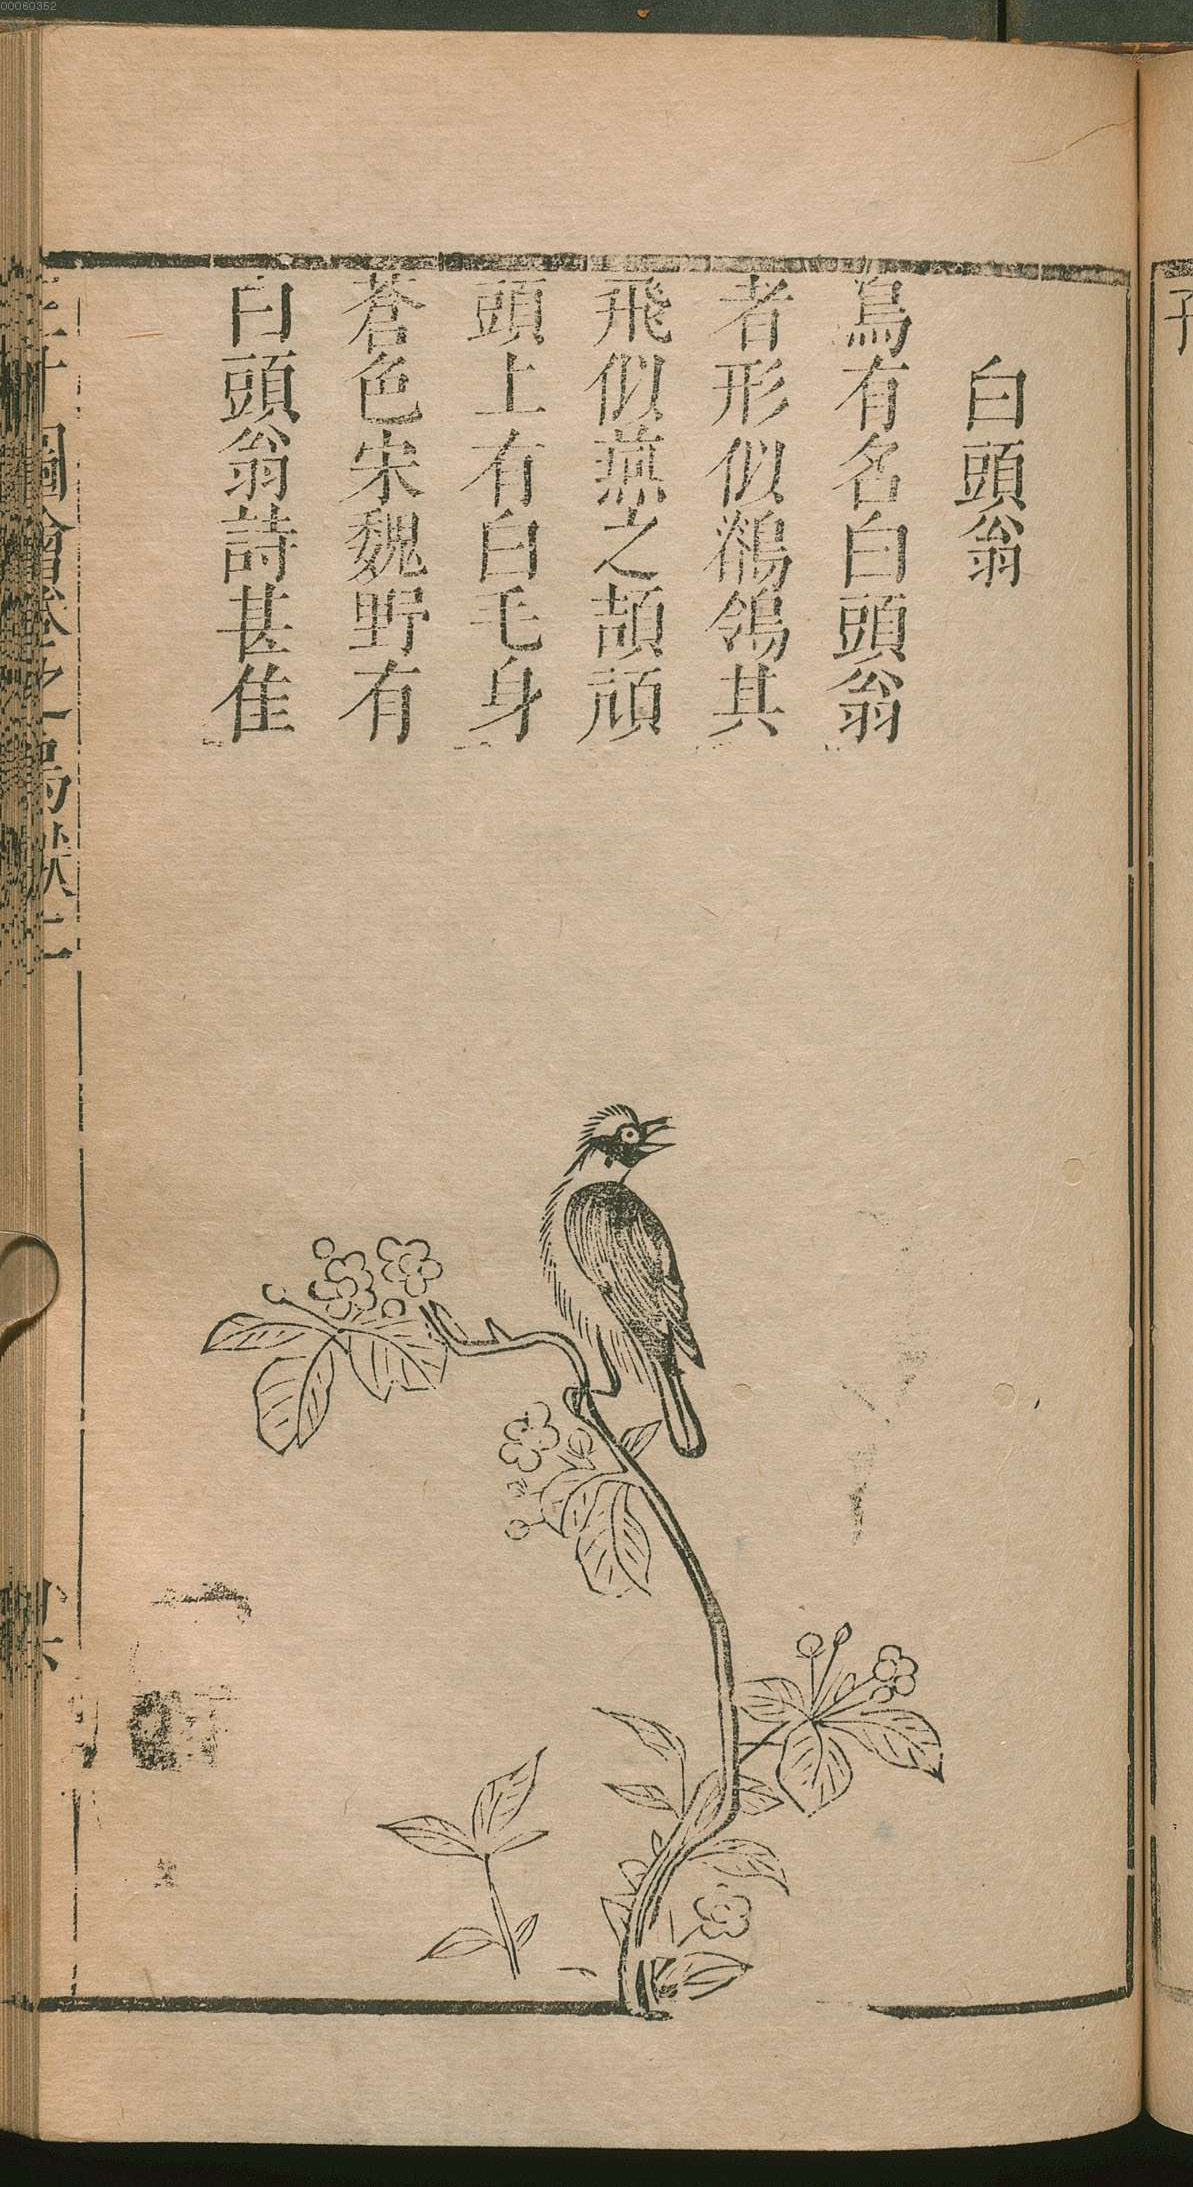 00060352
白頭翁
鳥有名白頭翁
者形似鶺鴒其
飛似燕之頡頏
頭上有白毛身
蒼色宋魏野有
白頭翁詩甚佳
圖會卷之鳥獸二